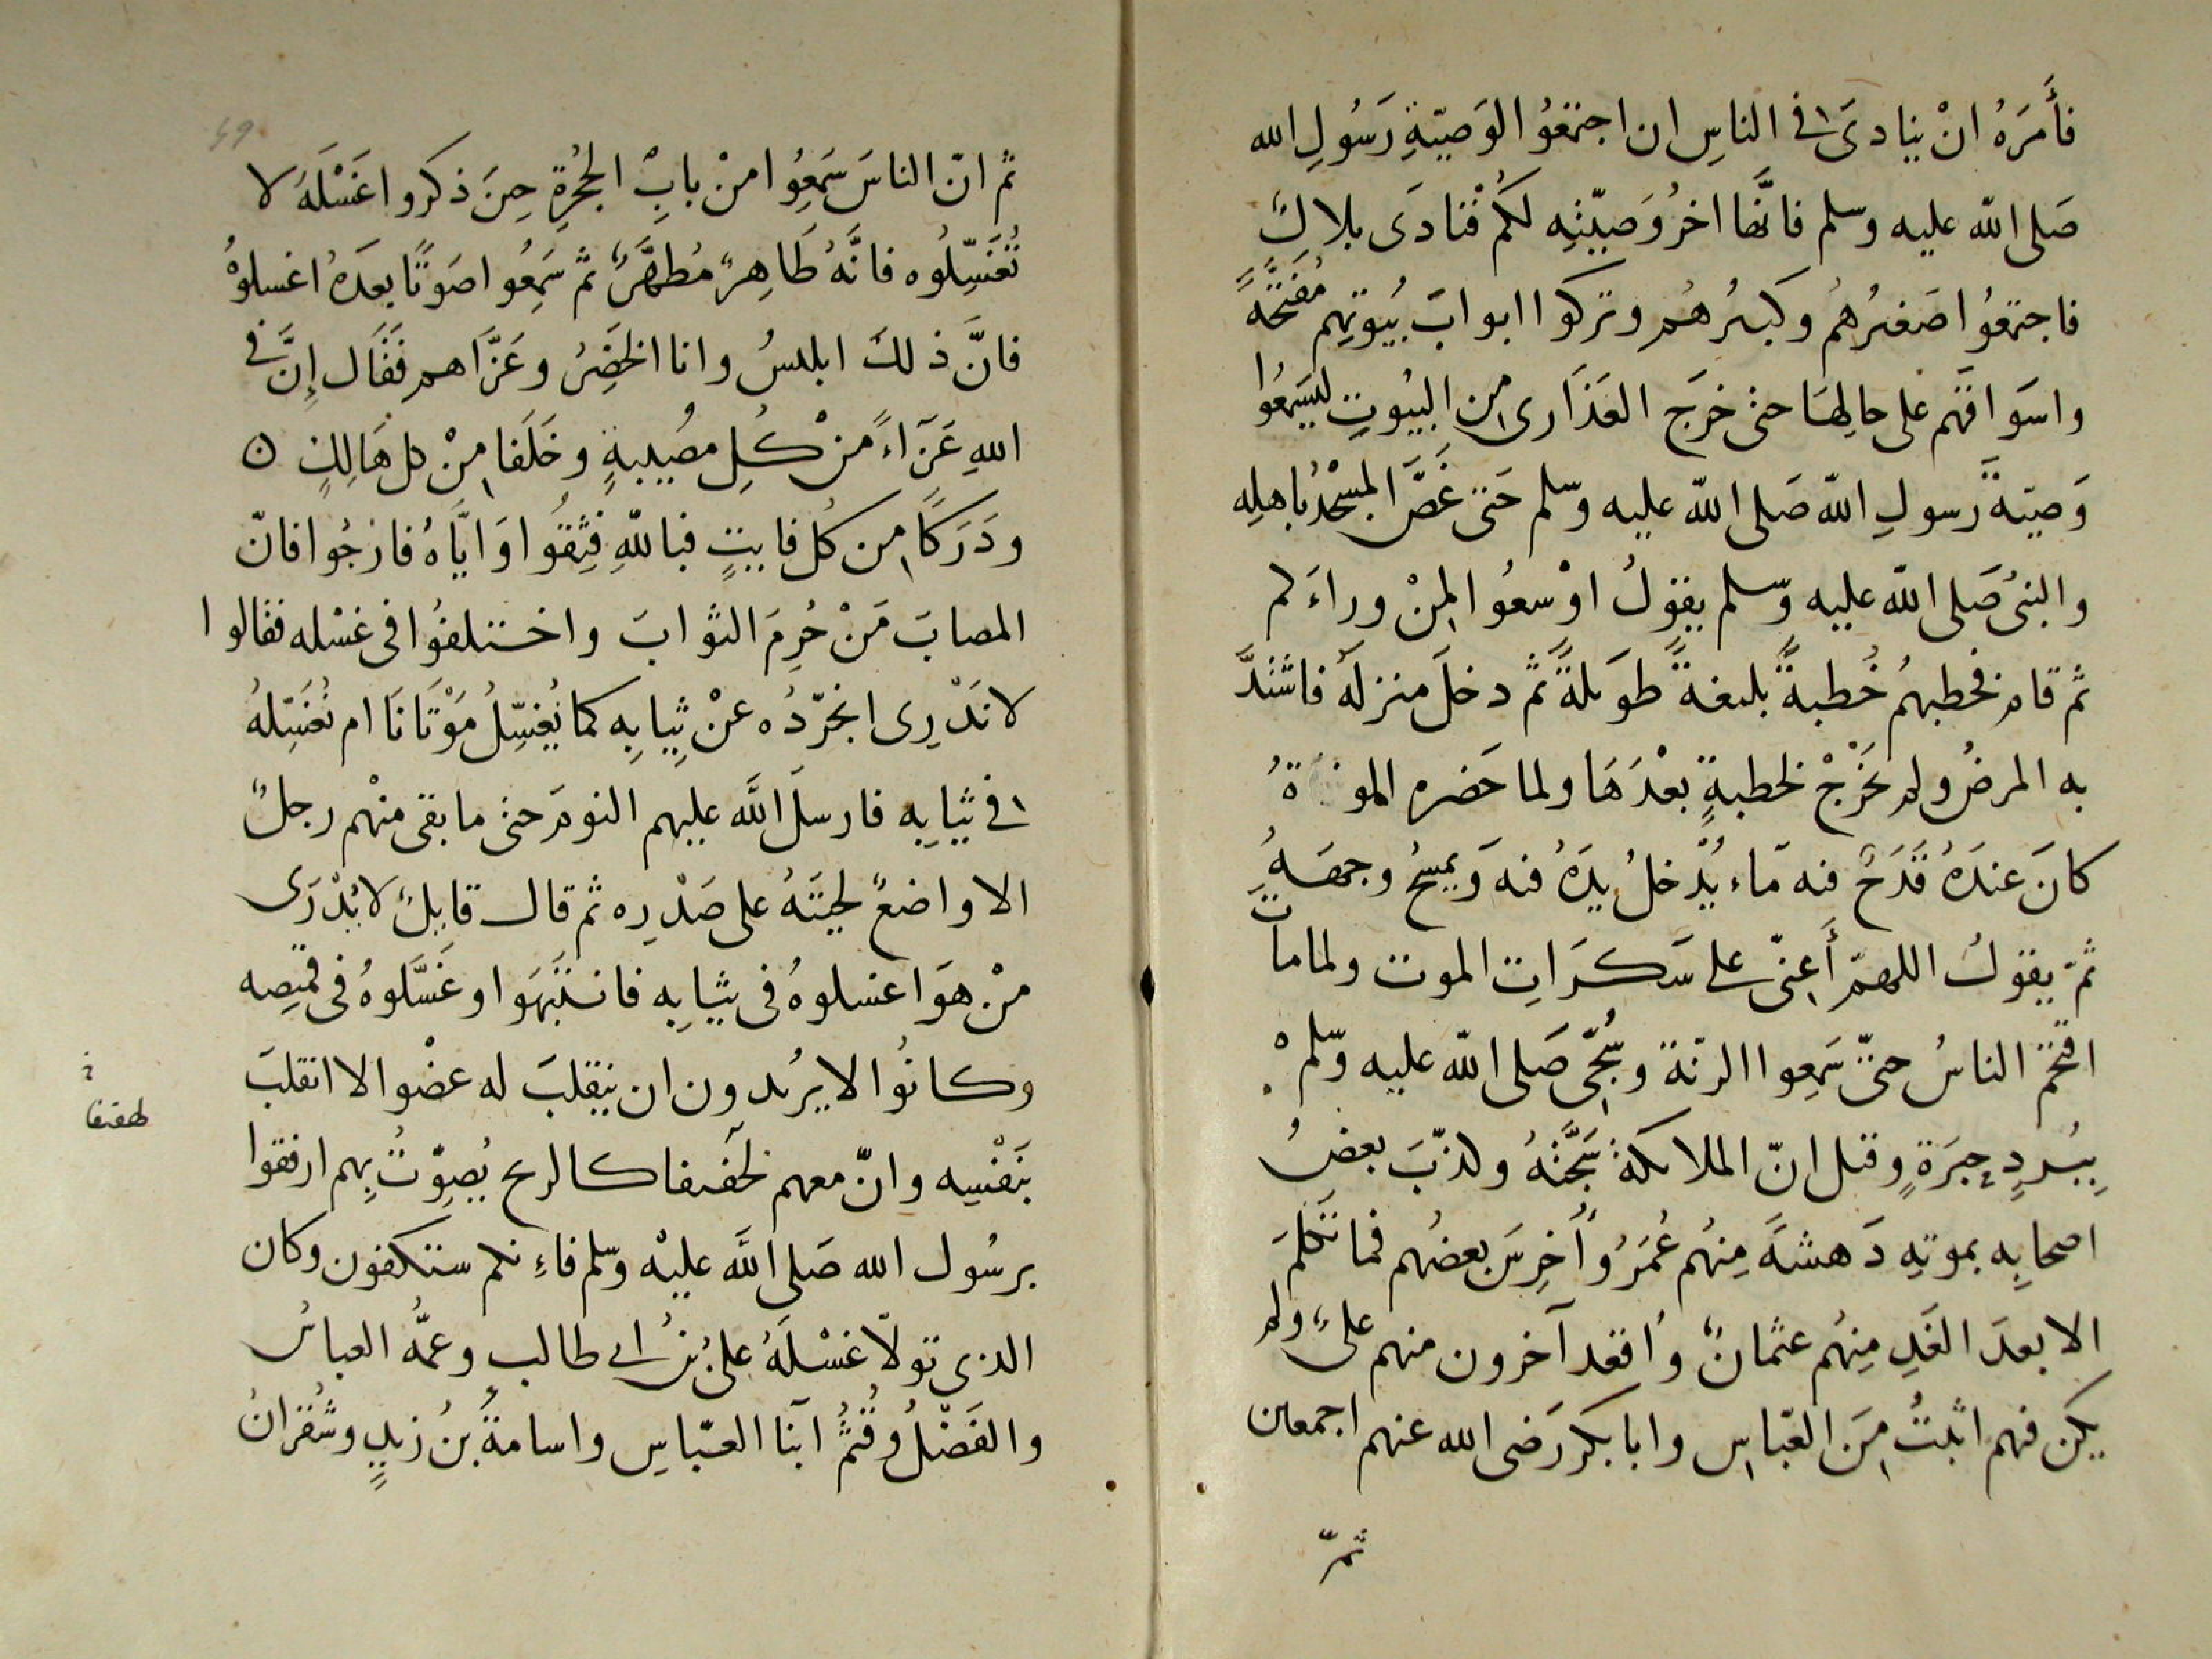 فأَمَرَهُ انْ ينادىَ في الناسِ ان اجتمعُوا لوَصيّةِ رَسُولِ الله
صَلى الله عليه وسلم فانَّها اخرُ وَصيّتِهِ لكم فنادَى بلالٌ
فاجتمعُوا صَغيرُهُم وكبيرُهُم وتركوا ابوابَ بُيُوتِهِم مُفَتَّحَةً
واسَواقَهم على حالِها حتى خرَجَ العَذَارى من البيُوتِ ليسَمعُوا
وَصيّةَ رَسولِ الله صَلى الله عليه وسلم حَتى غَصَّ المسْجدُ باهلِهِ
والنبىُ صَلى الله عليه وسلم يقولُ اوْسعُوا لمِنْ وراءَكم
ثم قام فخطبهُم خُطبةً بليغةً طويلةً ثم دخلَ منزلَهُ فاشتَدَّ
به المرضُ ولم يَخرُجْ لخطبةٍ بعْدَهَا ولما حَضره
كانَ عندَهُ قَدَحٌ فيه مَاء يُدْخلُ يدَهُ فيه وَيمسحُ وجهَهُ
ثم يقولُ اللهمّ أَعِنّي على سَكَرَاتِ الموت ولما ماتَ
اقتحَمَ الناسُ حتىّ سَمِعوا الرنّةَ وسُجِّيَ صَلى الله عليه وسّلمْ
بِبُردٍ حِبَرَةٍ وقيل انّ الملائكةَ سَجَّتْهُ وكذّبَ بعضُ
اصحابِه بموتِهِ دَهشَةً مِنهُم عُمَرُ وأُخرِسَ بعضُهم فما تَكَلمَ
الا بعدَ الغَدِ مِنهُم عثمانُ وأُقعد آخرون منهم علىٌ ولم
يكن فيهم اثبتُ مِنَ العَبّاسِ وابا بكر رَضى الله عنهم اجمعين
ثمّ
ثم انّ الناسَ سَمَعِوُا منْ بابِ الحُجْرةِ حِينَ ذكروا غَسْلَهَ لا
تُغَسِّلُوه فانَّهُ طَاهِرٌ مُطهَّرٌ ثم سَمِعُوا صَوتًا بعدَهُ اغسلوْهُ
فانَّ ذلكَ ابليسُ وانا الخَضِرُ وعَزَّاهم فقَالَ إِنَّ في
اللهِ عَزَاءً منْ كُلِّ مصُيبةٍ وخَلَفا مِنْ كل هَالِكٍ ۞
ودَرَكًا من كُل فايتٍ فباللهِ فثِقُوا وَايَّاهُ فارْجُوا فانّ
المصابَ مَنْ حُرِمَ الثوابَ واختلفوُا في غسْله فقالوا
لا نَدْرِى انجرّدُه عنْ ثِيابِه كما نُغسِّلُ مَوْتَانَا ام نُغسِّلهُ
في ثيابِه فارسلَ اللَّه عليهم النومَ حتى ما بقى منْهم رجلٌ
الا واضعٌ لحيتَهُ على صَدْرِه ثم قال قايلٌ لا يُدْرَى
منْ هوَ اغسلوهُ في ثيابِه فانتَبهَوا وغَسَّلوهُ في قميصِه
وكانُوا لا يرُيدون ان ينقلبَ له عضْو الا انقلبَ
بنَفْسِه وانّ معهم لحَفيفا كالريح يُصوِّتُ بِهم ارفقوا
برسُول الله صَلى اللَّه عليْه وسّلم فاءِنكم ستكفون وكان
الذى تولاّ غسْلَهُ علىُ بنُ ابى طالب وعمُّه العباسُ
والفَضْلُ وقُثَمُ ابنا العبّاسِ واسامةُ بنُ زيدٍ وشُقرانُ